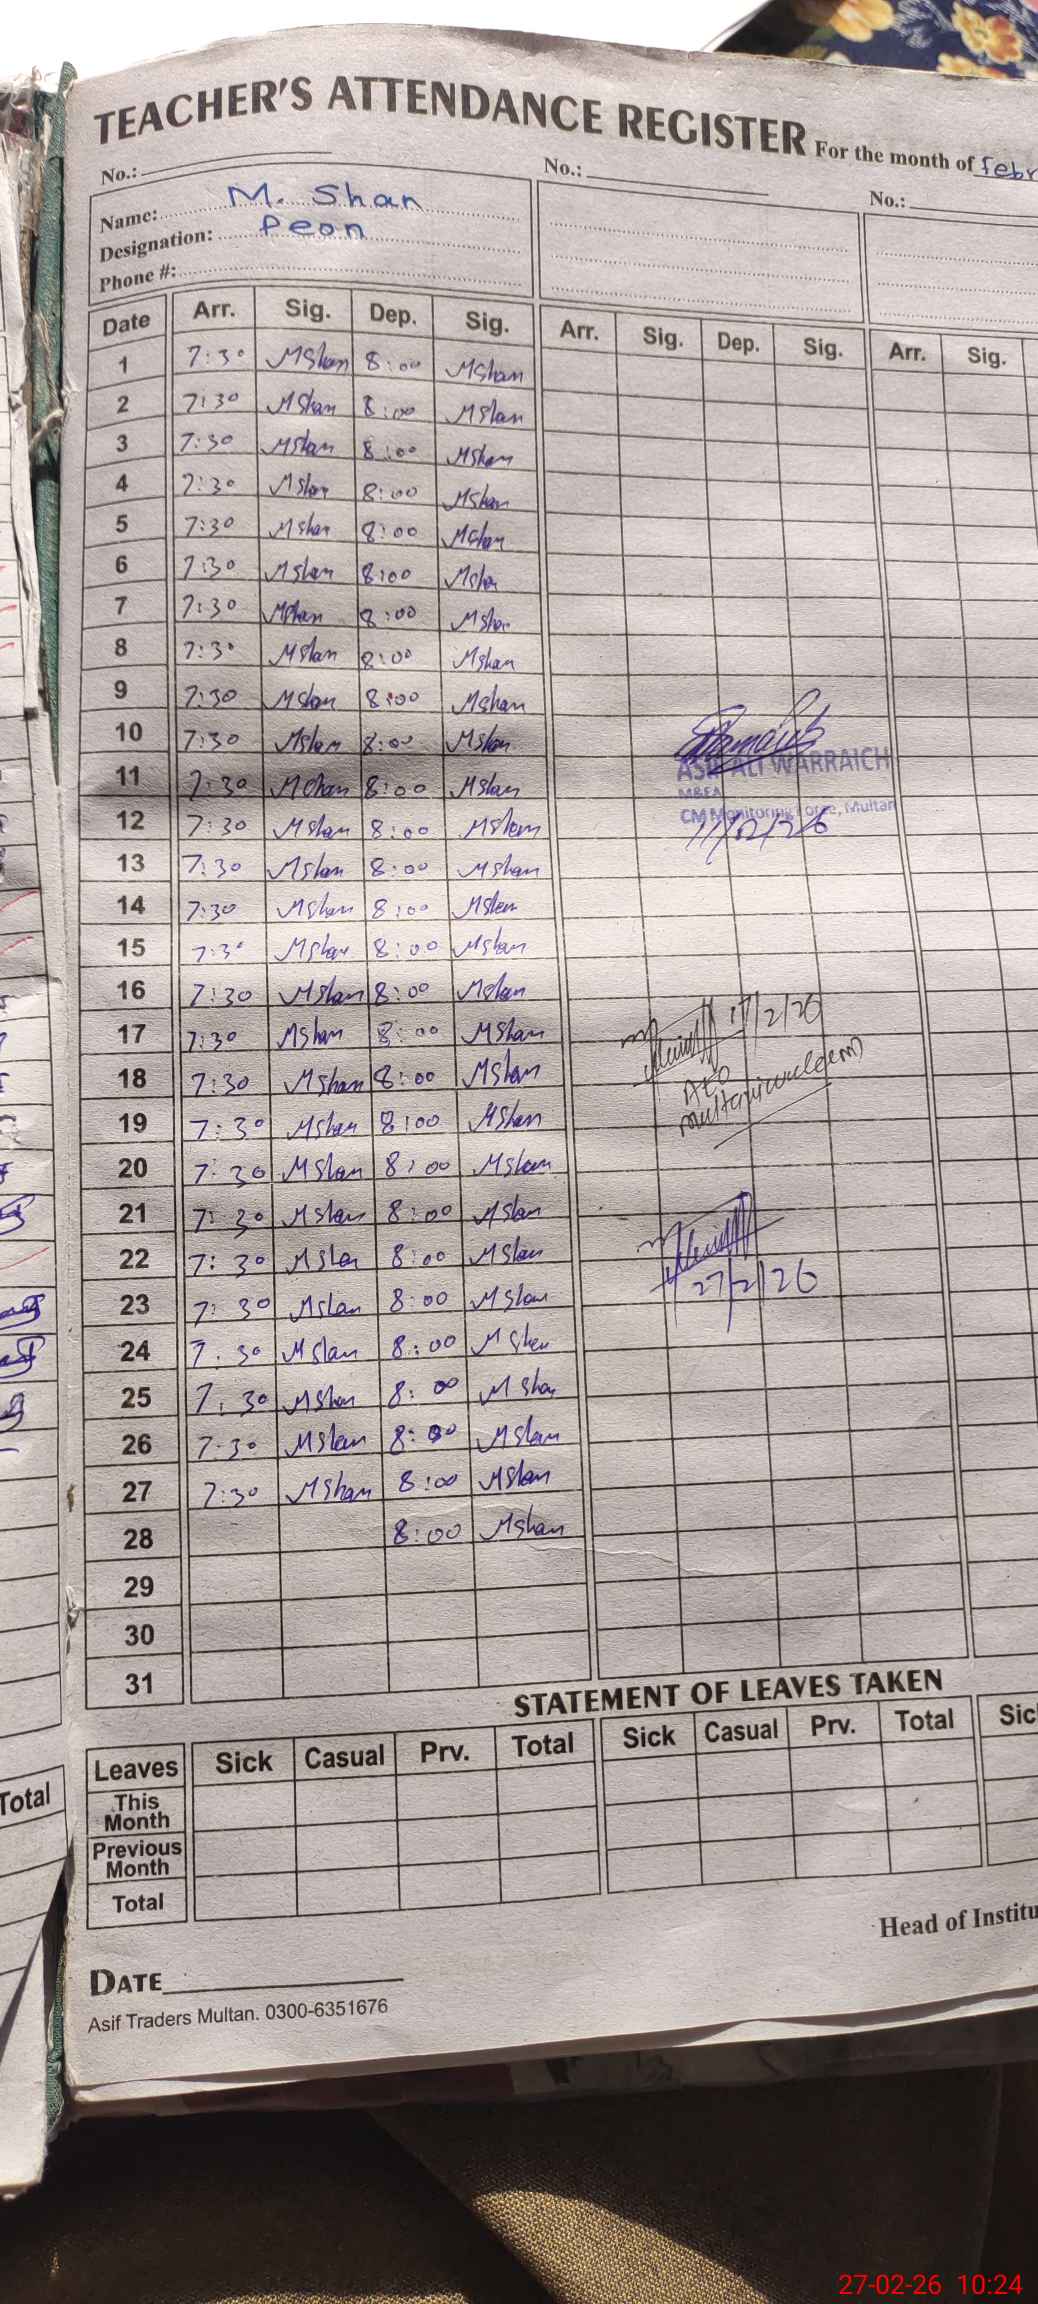 TEACHER'S ATTENDANCE REGISTER For the month of febr
No.: No.: No.:
Name: M. Shan
Designation: Peon
Phone #:
Date Arr. Sig. Dep. Sig. Arr. Sig. Dep. Sig. Arr. Sig.
1 7:30 MShan 8:00 MShan
2 7:30 MShan 8:00 MShan
3 7:30 MShan 8:00 MShan
4 7:30 MShan 8:00 MShan
5 7:30 MShan 8:00 MShan
6 7:30 MShan 8:00 MShan
7 7:30 MShan 8:00 MShan
8 7:30 MShan 8:00 MShan
9 7:30 MShan 8:00 MShan
10 7:30 MShan 8:00 MShan
11 7:30 MShan 8:00 MShan
ASIF ALI WARRAICH
M&EA
CM Monitoring Force, Multan
12 7:30 MShan 8:00 MShan
11/02/26
13 7:30 MShan 8:00 MShan
14 7:30 MShan 8:00 MShan
15 7:30 MShan 8:00 MShan
16 7:30 MShan 8:00 MShan
17 7:30 MShan 8:00 MShan 17/2/26
18 7:30 MShan 8:00 MShan AEO
19 7:30 MShan 8:00 MShan
20 7:30 MShan 8:00 MShan
21 7:30 MShan 8:00 MShan
22 7:30 MShan 8:00 MShan
23 7:30 MShan 8:00 MShan 27/2/26
24 7:30 MShan 8:00 MShan
25 7:30 MShan 8:00 MShan
26 7:30 MShan 8:00 MShan
27 7:30 MShan 8:00 MShan
28 8:00 MShan
29
30
31
STATEMENT OF LEAVES TAKEN
Leaves Sick Casual Prv. Total Sick Casual Prv. Total Sic
This Month
Previous Month
Total
Total
Head of Institu
DATE
Asif Traders Multan. 0300-6351676
27-02-26 10:24